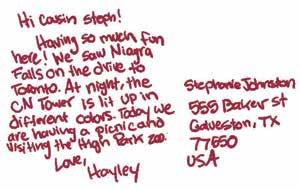 Hi Cousin Steph!
Having so much fun
here! We saw Niagra
Falls on the drive to
Toronto. At night, the
CN Tower is lit up in
different colors. Today we
are having a picnic and
visiting the High Park zoo.
Love,
Hayley
Stephanie Johnston
555 Baker st
Galveston, TX
77550
USA